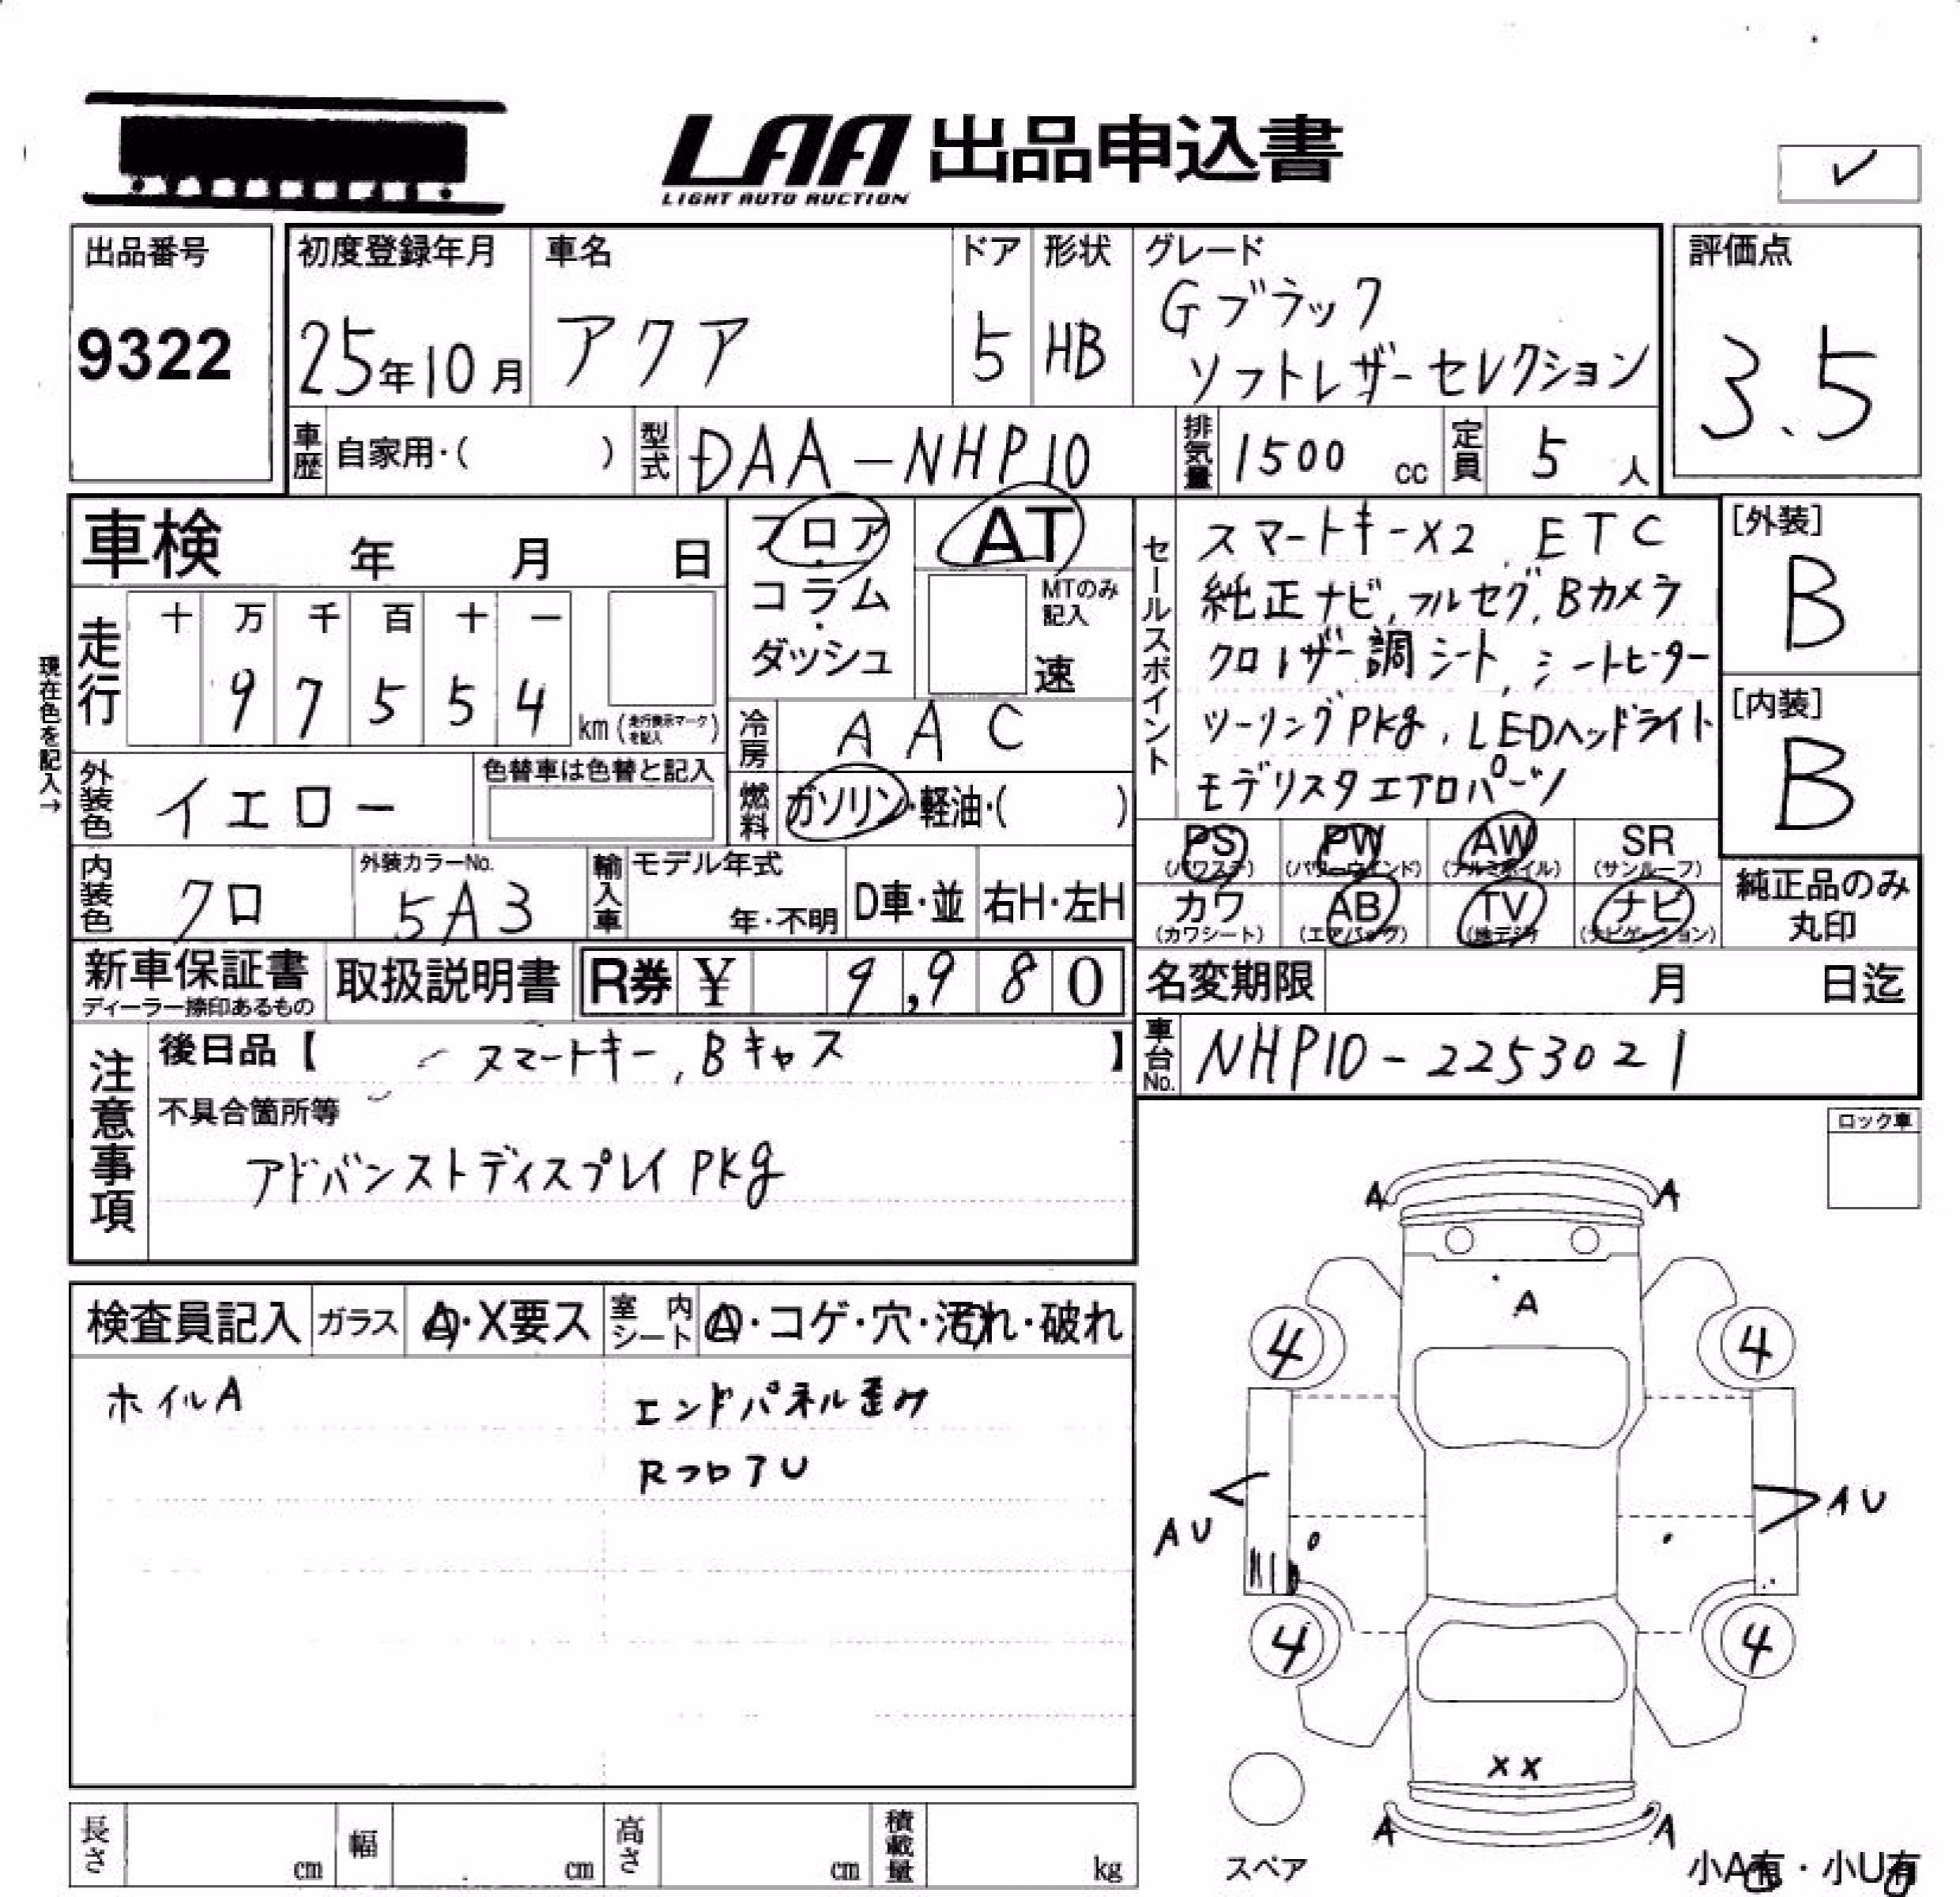 LAA 出品申込書
LIGHT AUTO AUCTION
✓
出品番号
9322
初度登録年月
25年10月
車名
アクア
ドア
5
形状
HB
グレード
Gブラック
ソフトレザーセレクション
評価点
3.5
車歴 自家用・( )
型式 DAA-NHP10
排気量 1500 cc
定員 5 人
車検 年 月 日
フロア・コラム・ダッシュ
AT
MTのみ記入
速
セールスポイント
スマートキーX2 , ETC
純正ナビ, フルセグ, Bカメラ
クロレザー調シート, シートヒーター
ツーリングPKg , LEDヘッドライト
モデリスタエアロパーツ
[外装]
B
[内装]
B
現在色を記入→
走行
十 万 千 百 十 一
9 7 5 5 4
km (走行表示マークを記入)
冷房 AAC
外装色 イエロー
色替車は色替と記入
燃料 ガソリン・軽油・( )
PS (パワステ)
PW (パワーウインド)
AW (アルミホイル)
SR (サンルーフ)
カワ (カワシート)
AB (エアバッグ)
TV (地デジ)
ナビ (ナビゲーション)
純正品のみ
丸印
内装色 クロ
外装カラーNo.
5A3
輸入車
モデル年式
年・不明
D車・並
右H・左H
新車保証書
ディーラー捺印あるもの
取扱説明書
R券 ¥ 9,980
名変期限 月 日迄
車台No. NHP10-2253021
注意事項
後日品【 スマートキー, Bキャス 】
不具合箇所等
アドバンストディスプレイPKg
ロック車
検査員記入
ガラス A・X要ス
室内シート A・コゲ・穴・汚れ・破れ
ホイルA
エンドパネル歪み
RフロアU
A A
A
4 4
AU AU
4 4
XX
A A
スペア
小A有・小U有
長さ cm
幅 cm
高さ cm
積載量 kg